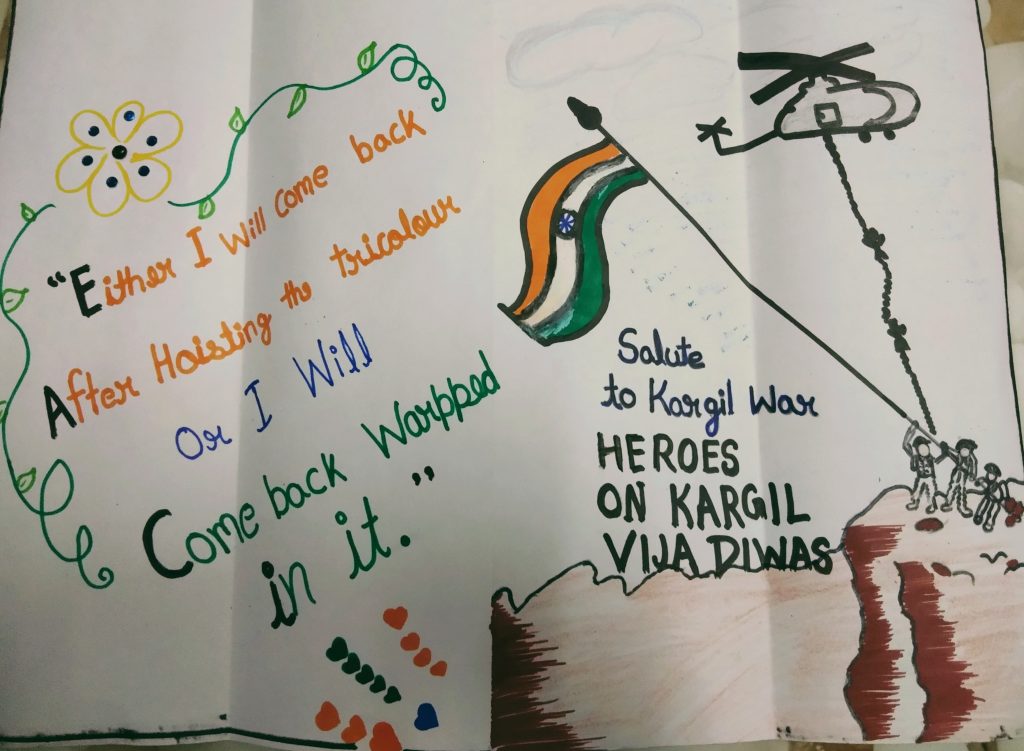 "Either I Will Come back
After Hoisting the tricolour
Or I Will
Come back Warpped
in it."
Salute
to Kargil War
HEROES
ON KARGIL
VIJA DIWAS